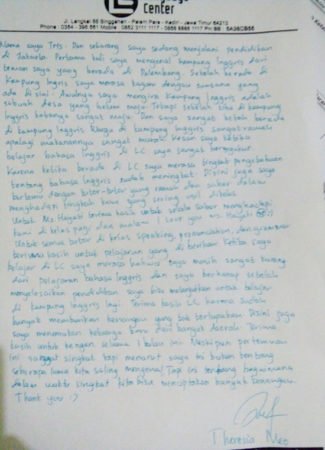 Center
Jl. Langkat 88 Singgahan - Palem Pare - Kediri - Jawa Timur 64213
Nama saya Tres. Dan sekarang saya sedang menjalani pendidikan
di Jakarta. Pertama kali saya mengenal kampung Inggris dari
teman saya yang berada di Palembang. Setelah berada di
Kampung Inggris saya merasa kagum dengan suasana yang
ada di sini. Awalnya saya mengira Kampung Inggris adalah
sebuah desa yang belum maju. Tetapi setelah tiba di kampung
Inggris ternyata sangat maju. Dan saya sangat betah berada
di kampung Inggris. Warga di kampung Inggris sangat ramah
apalagi makanannya sangat murah. Kesan saya ketika
belajar bahasa Inggris di LC saya sangat bersyukur
Karena ketika berada di LC saya merasa tingkat pengetahuan
tentang bahasa Inggris sudah meningkat. Disini juga saya
bertemu dengan tutor-tutor yang ramah dan sabar dalam
mengajarkan tingkah laku yang sering usil dikelas
Untuk Ms Hayati terima kasih untuk selalu sabar menghadapi
kami di kelas pagi dan malam I Love you Ms Hayati
Untuk semua tutor di kelas speaking, pronunciation, dan grammar
terima kasih untuk pelajaran yang di berikan ketika saya
belajar di LC saya merasa bahwa saya masih sangat kurang
dari pelajaran bahasa Inggris dan saya berharap setelah
menyelesaikan pendidikan saya bisa melanjutkan untuk belajar
di kampung Inggris lagi. Terima kasih LC karena sudah
banyak memberikan kenangan yang tak terlupakan. Disini juga
saya menemukan keluarga baru dari banyak daerah. Terima
kasih untuk kenangan selama 1 bulan ini. Meskipun pertemuan
ini sangat singkat tapi menurut saya ini bukan tentang
seberapa lama kita saling mengenal. Tapi ini tentang bagaimana
dalam waktu singkat kita bisa menciptakan banyak kenangan.
Thank you :)
Theresia Meo